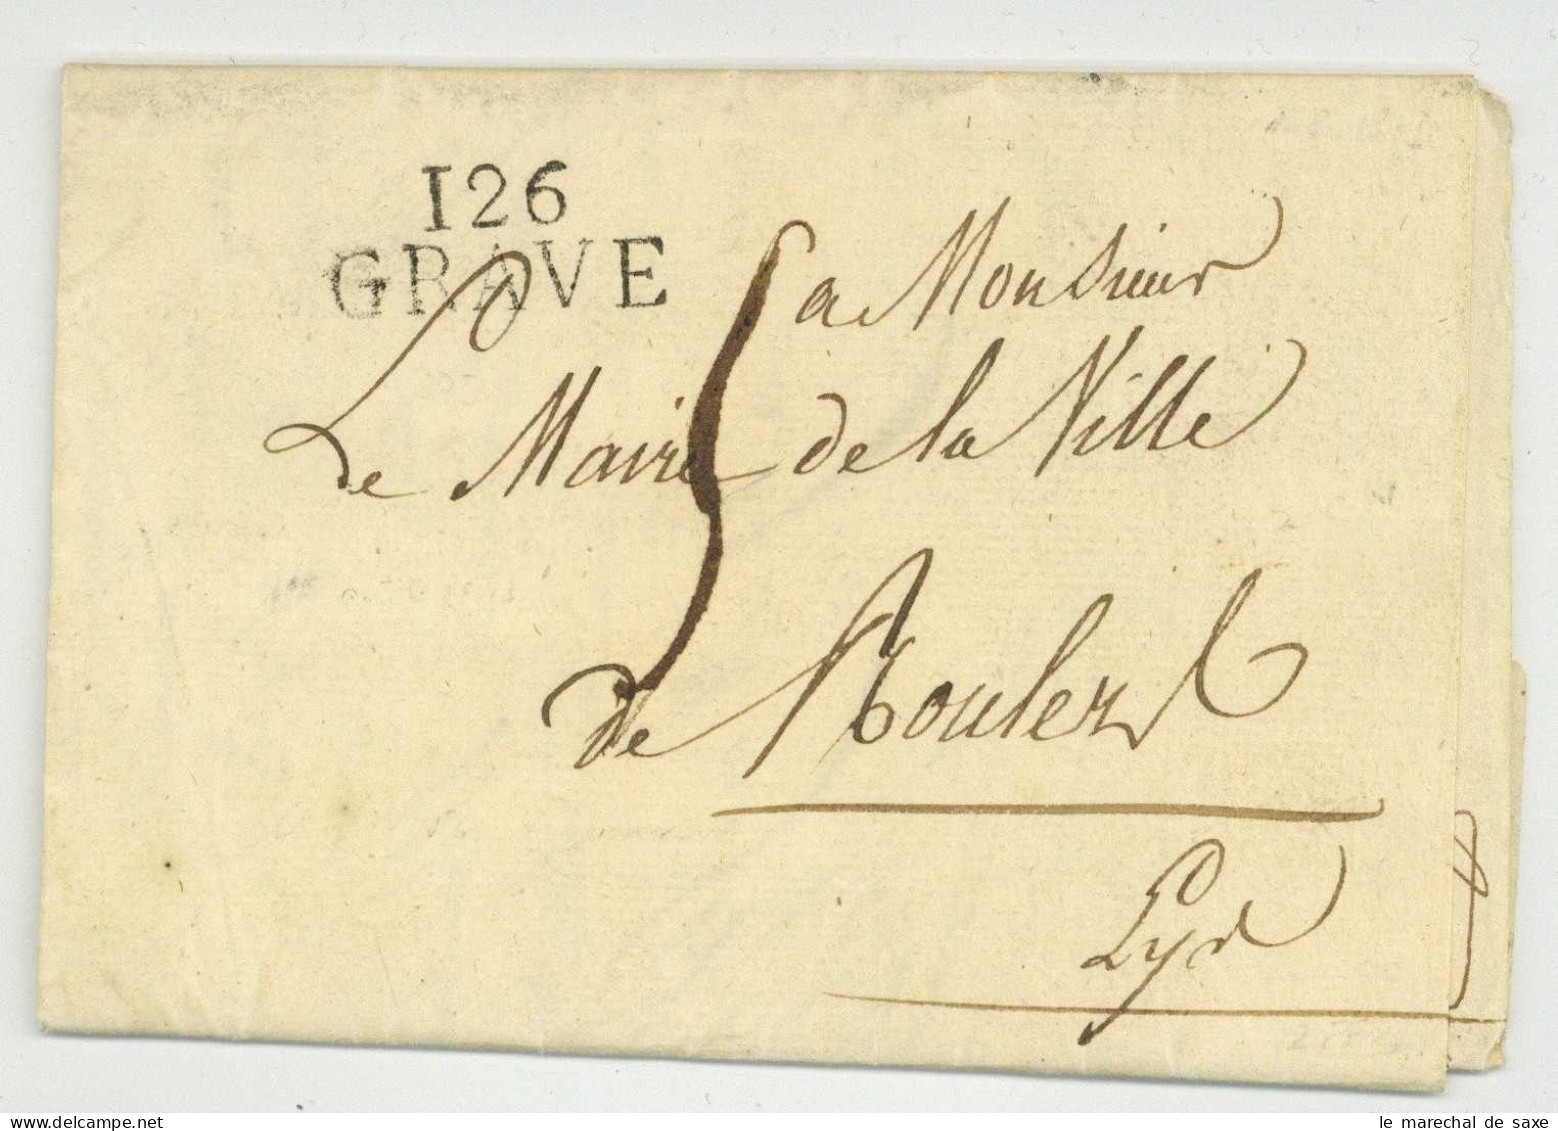 126
GRAVE
5
a Monsieur
Le Maire de la Ville
de Roulers
Lys
le marechal de saxe